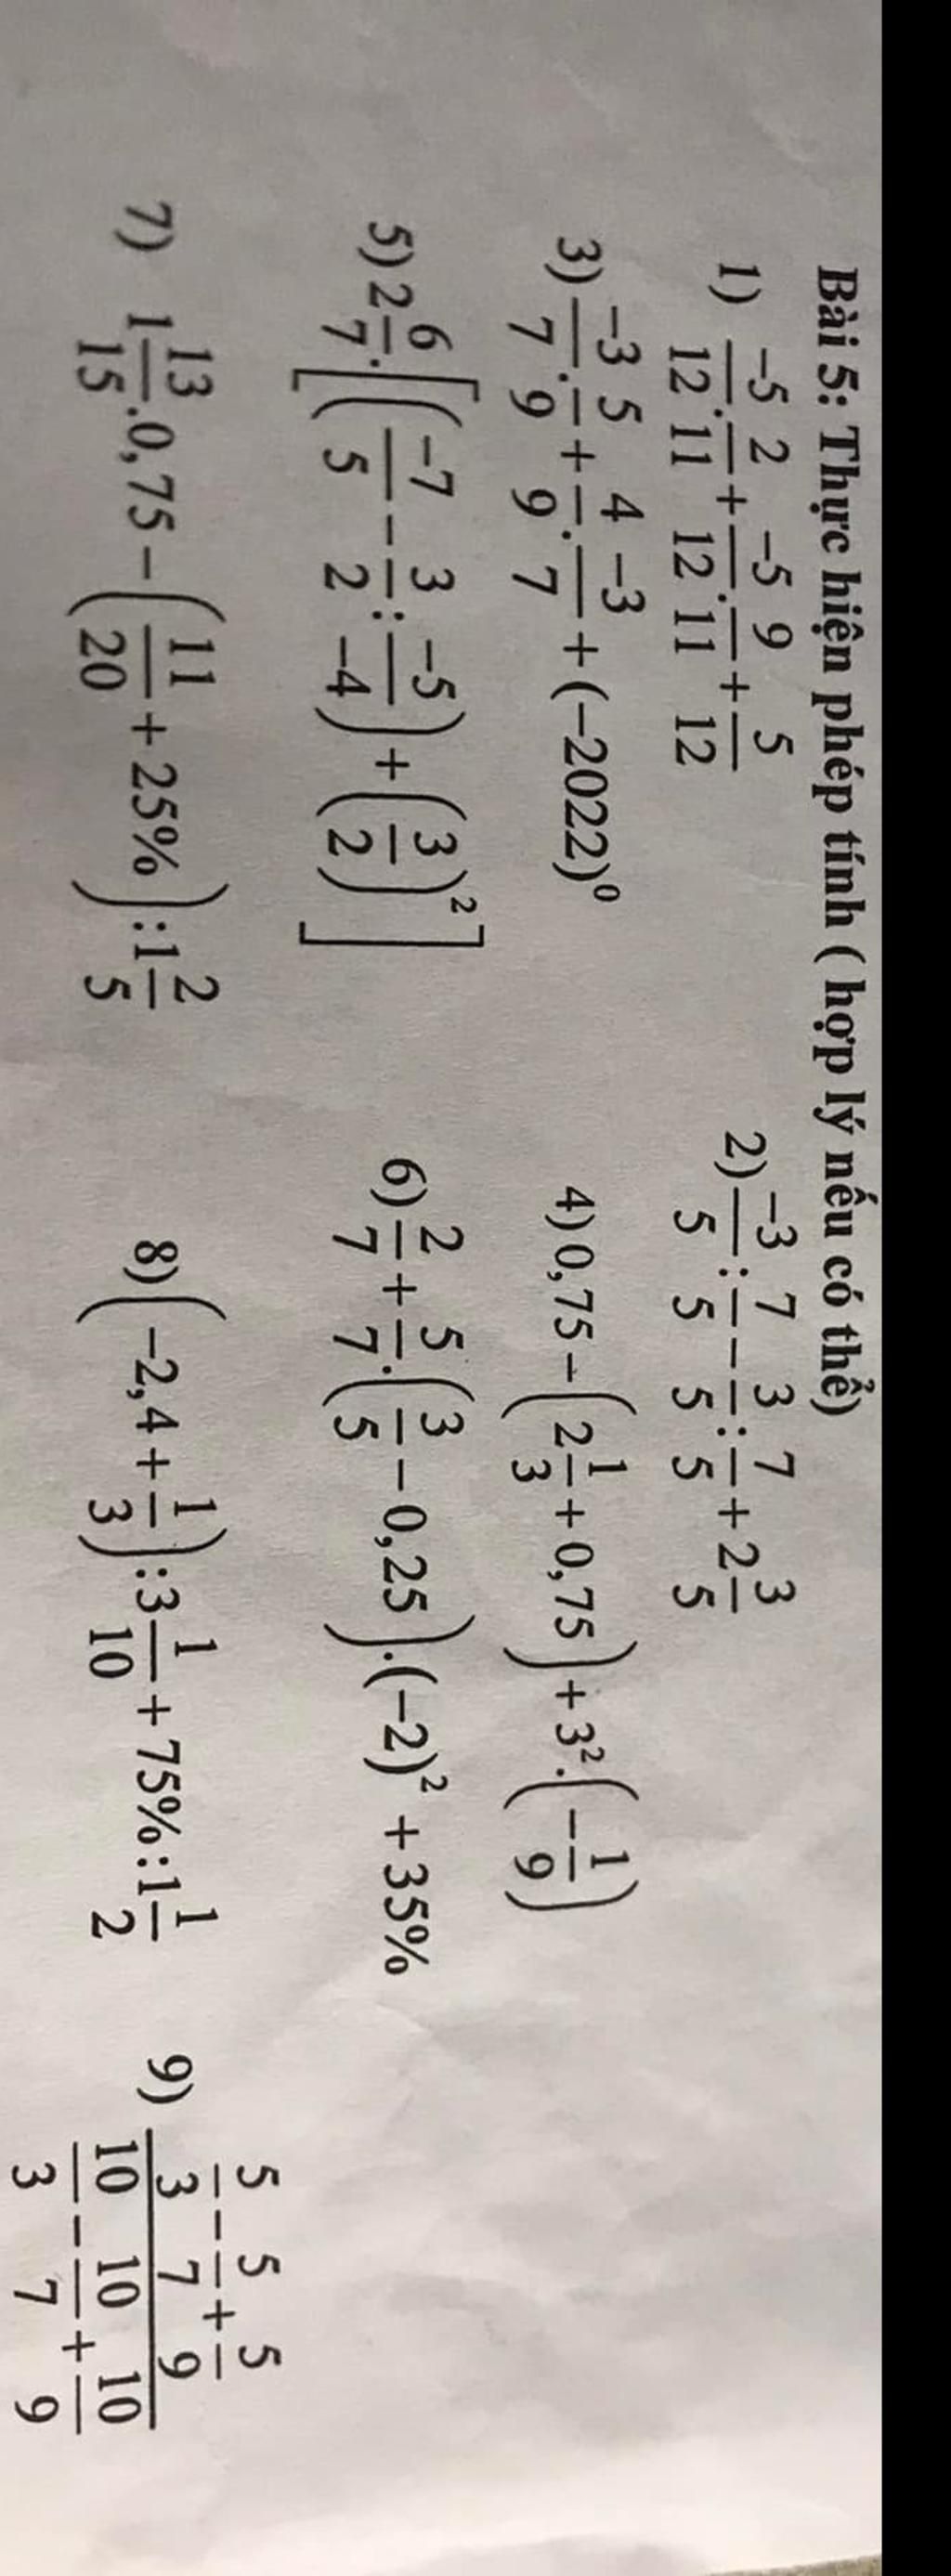 Bài 5: Thực hiện phép tính ( hợp lý nếu có thể)
1) -5/12 . 2/11 + -5/12 . 9/11 + 5/12
2) -3/5 : 7/5 - 3/5 : 7/5 + 2 3/5
3) -3/7 . 5/9 + 4/9 . -3/7 + (-2022)⁰
4) 0,75 - (2 1/3 + 0,75) + 3² . (-1/9)
5) 2 6/7 . [(-7/5 - 3/2 : -5/-4) + (3/2)²]
6) 2/7 + 5/7 . (3/5 - 0,25) . (-2)² + 35%
7) 1 13/15 . 0,75 - (11/20 + 25%) : 1 2/5
8) (-2,4 + 1/3) : 3 1/10 + 75% : 1 1/2
9) (5/3 - 5/7 + 5/9) / (10/3 - 10/7 + 10/9)